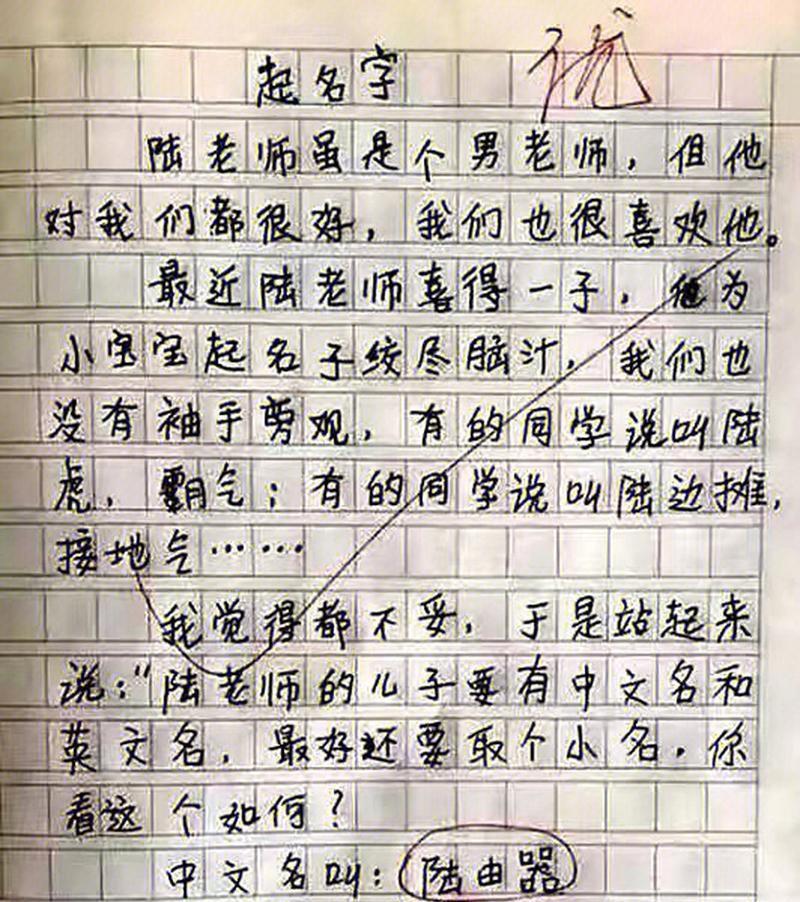 起名字
优
陆老师虽是个男老师，但他
对我们都很好，我们也很喜欢他。
最近陆老师喜得一子，他为
小宝宝起名子绞尽脑汁，我们也
没有袖手旁观，有的同学说叫陆
虎，霸气；有的同学说叫陆边摊，
接地气……
我觉得都不妥，于是站起来
说：“陆老师的儿子要有中文名和
英文名，最好还要取个小名，你
看这个如何？
中文名叫：陆由器